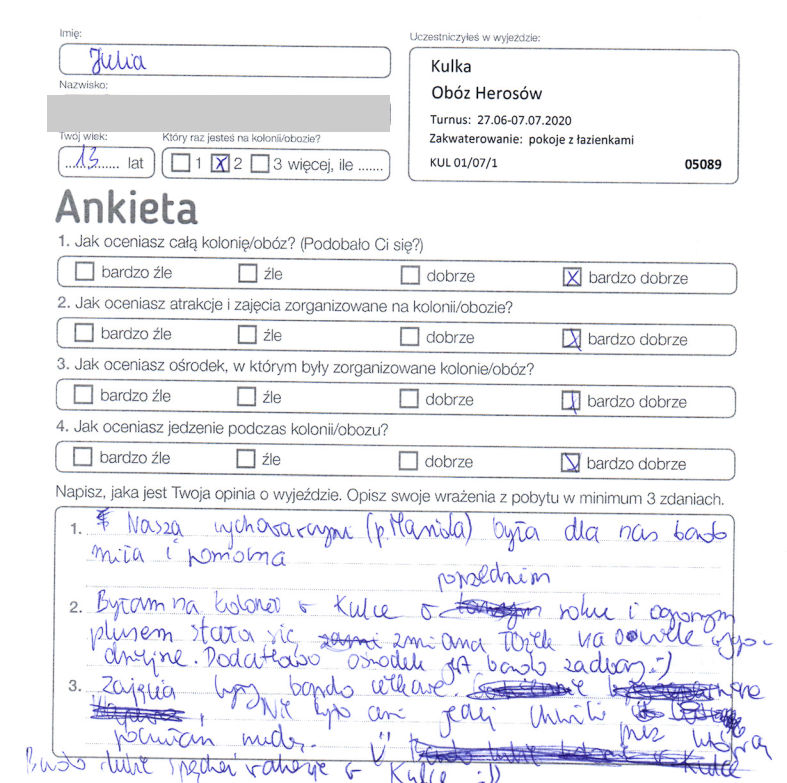 Imię:
Julia
Nazwisko:
Twój wiek:
13 lat
Który raz jesteś na kolonii/obozie?
1 x 2 3 więcej, ile .......
Uczestniczyłeś w wyjeździe:
Kulka
Obóz Herosów
Turnus: 27.06-07.07.2020
Zakwaterowanie: pokoje z łazienkami
KUL 01/07/1 05089
Ankieta
1. Jak oceniasz całą kolonię/obóz? (Podobało Ci się?)
bardzo źle źle dobrze x bardzo dobrze
2. Jak oceniasz atrakcje i zajęcia zorganizowane na kolonii/obozie?
bardzo źle źle dobrze x bardzo dobrze
3. Jak oceniasz ośrodek, w którym były zorganizowane kolonie/obóz?
bardzo źle źle dobrze x bardzo dobrze
4. Jak oceniasz jedzenie podczas kolonii/obozu?
bardzo źle źle dobrze x bardzo dobrze
Napisz, jaka jest Twoja opinia o wyjeździe. Opisz swoje wrażenia z pobytu w minimum 3 zdaniach.
1. Nasza wychowawczyni (p. ) była dla nas bardzo
miła i pomocna
poprzednim
2. Byłam na kolonii w Kulce w roku i ogromnym
plusem stała się zmiana łóżek na o wiele wygo-
dniejsze. Dodatkowo ośrodek jest bardzo zadbany :)
3. Zajęcia były bardzo ciekawe.
Nie było ani jednej chwili przez którą
nudę.
Bardzo lubię spędzać wakacje w Kulce :))